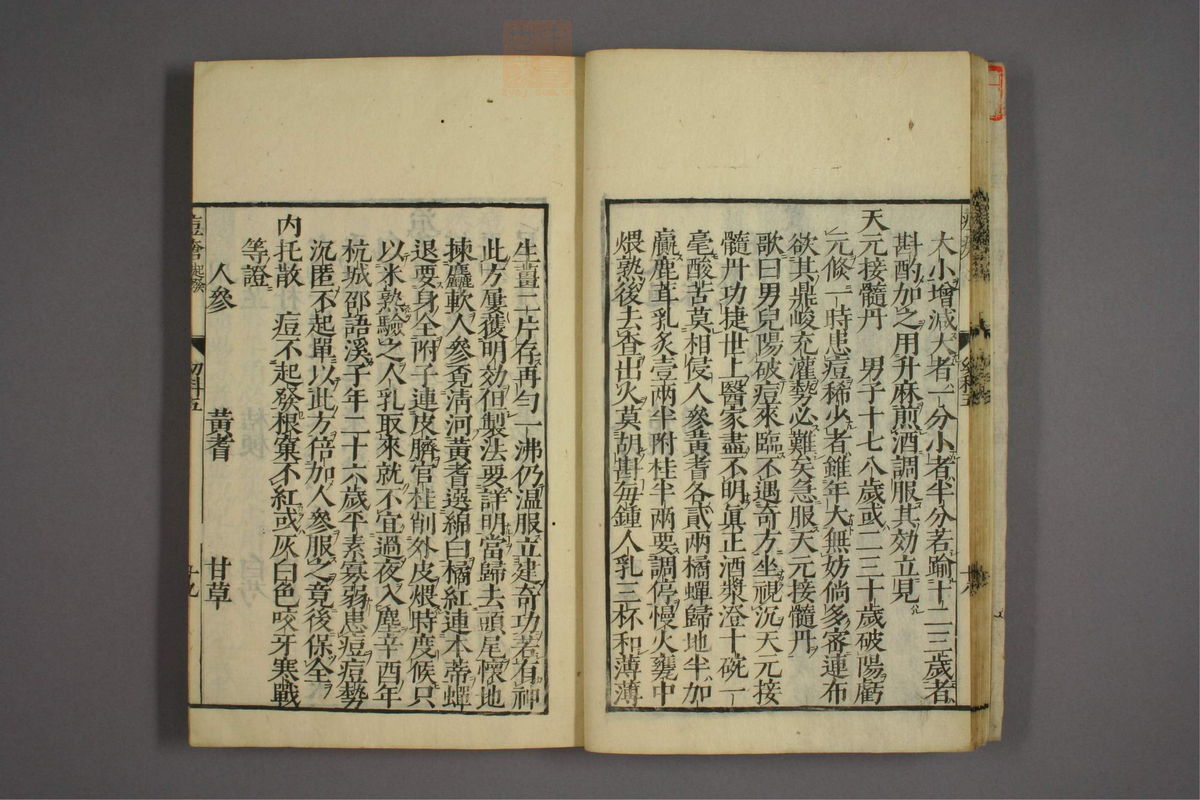 大小增減大者一分小者半分若踰十二三歲者
斟酌加之用升麻煎酒調服其効立見
天元接髓丹　男子十七八歲或二三十歲破陽虧
元條一時患痘稀少者雖年大無妨倘多審連布
欲其鼎峻充灌勢必難矣急服天元接髓丹
歌曰男兒陽破痘來臨不遇奇方坐視沉天元接
髓丹功捷世上醫家盡不明眞正酒漿澄十硫一
毫酸苦莫相侵人參黃耆各貳兩橘蟬歸地半加
麤鹿茸乳炙壹兩半附桂半兩要調停慢火甕中
煨熟後去查出火莫胡斟每鍾人乳三杯和薄薄
生薑二片存再勻一沸仍溫服立建奇功若有神
此方屢獲明効但製法要詳明當歸去頭尾懷地
揀麤軟人參竟淸河黃耆選綿白橘紅連木蒂蟬
退要身全附子連皮臍官桂削外皮煨時度候只
以米熟驗之人乳取來就不宜過夜入塵辛酉年
杭城邵語溪子年二十六歲平素寡弱患痘痘勢
沉匿不起單以此方倍加人參服之竟後保全
內托散　痘不起發根窠不紅或灰白色咬牙寒戰
等證
人參　黃耆　甘草
幼科五